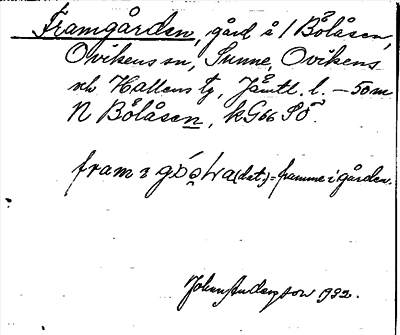 Framgården, gård å 1 Bölåsen,
Ovikens sn, Sunne, Ovikens
och Hallens tg, Jämtl. l. – 50m
N Bölåsen, kG66 SÖ.
fram i (dat.) = framme i gården.
Johan Anderson 1932.